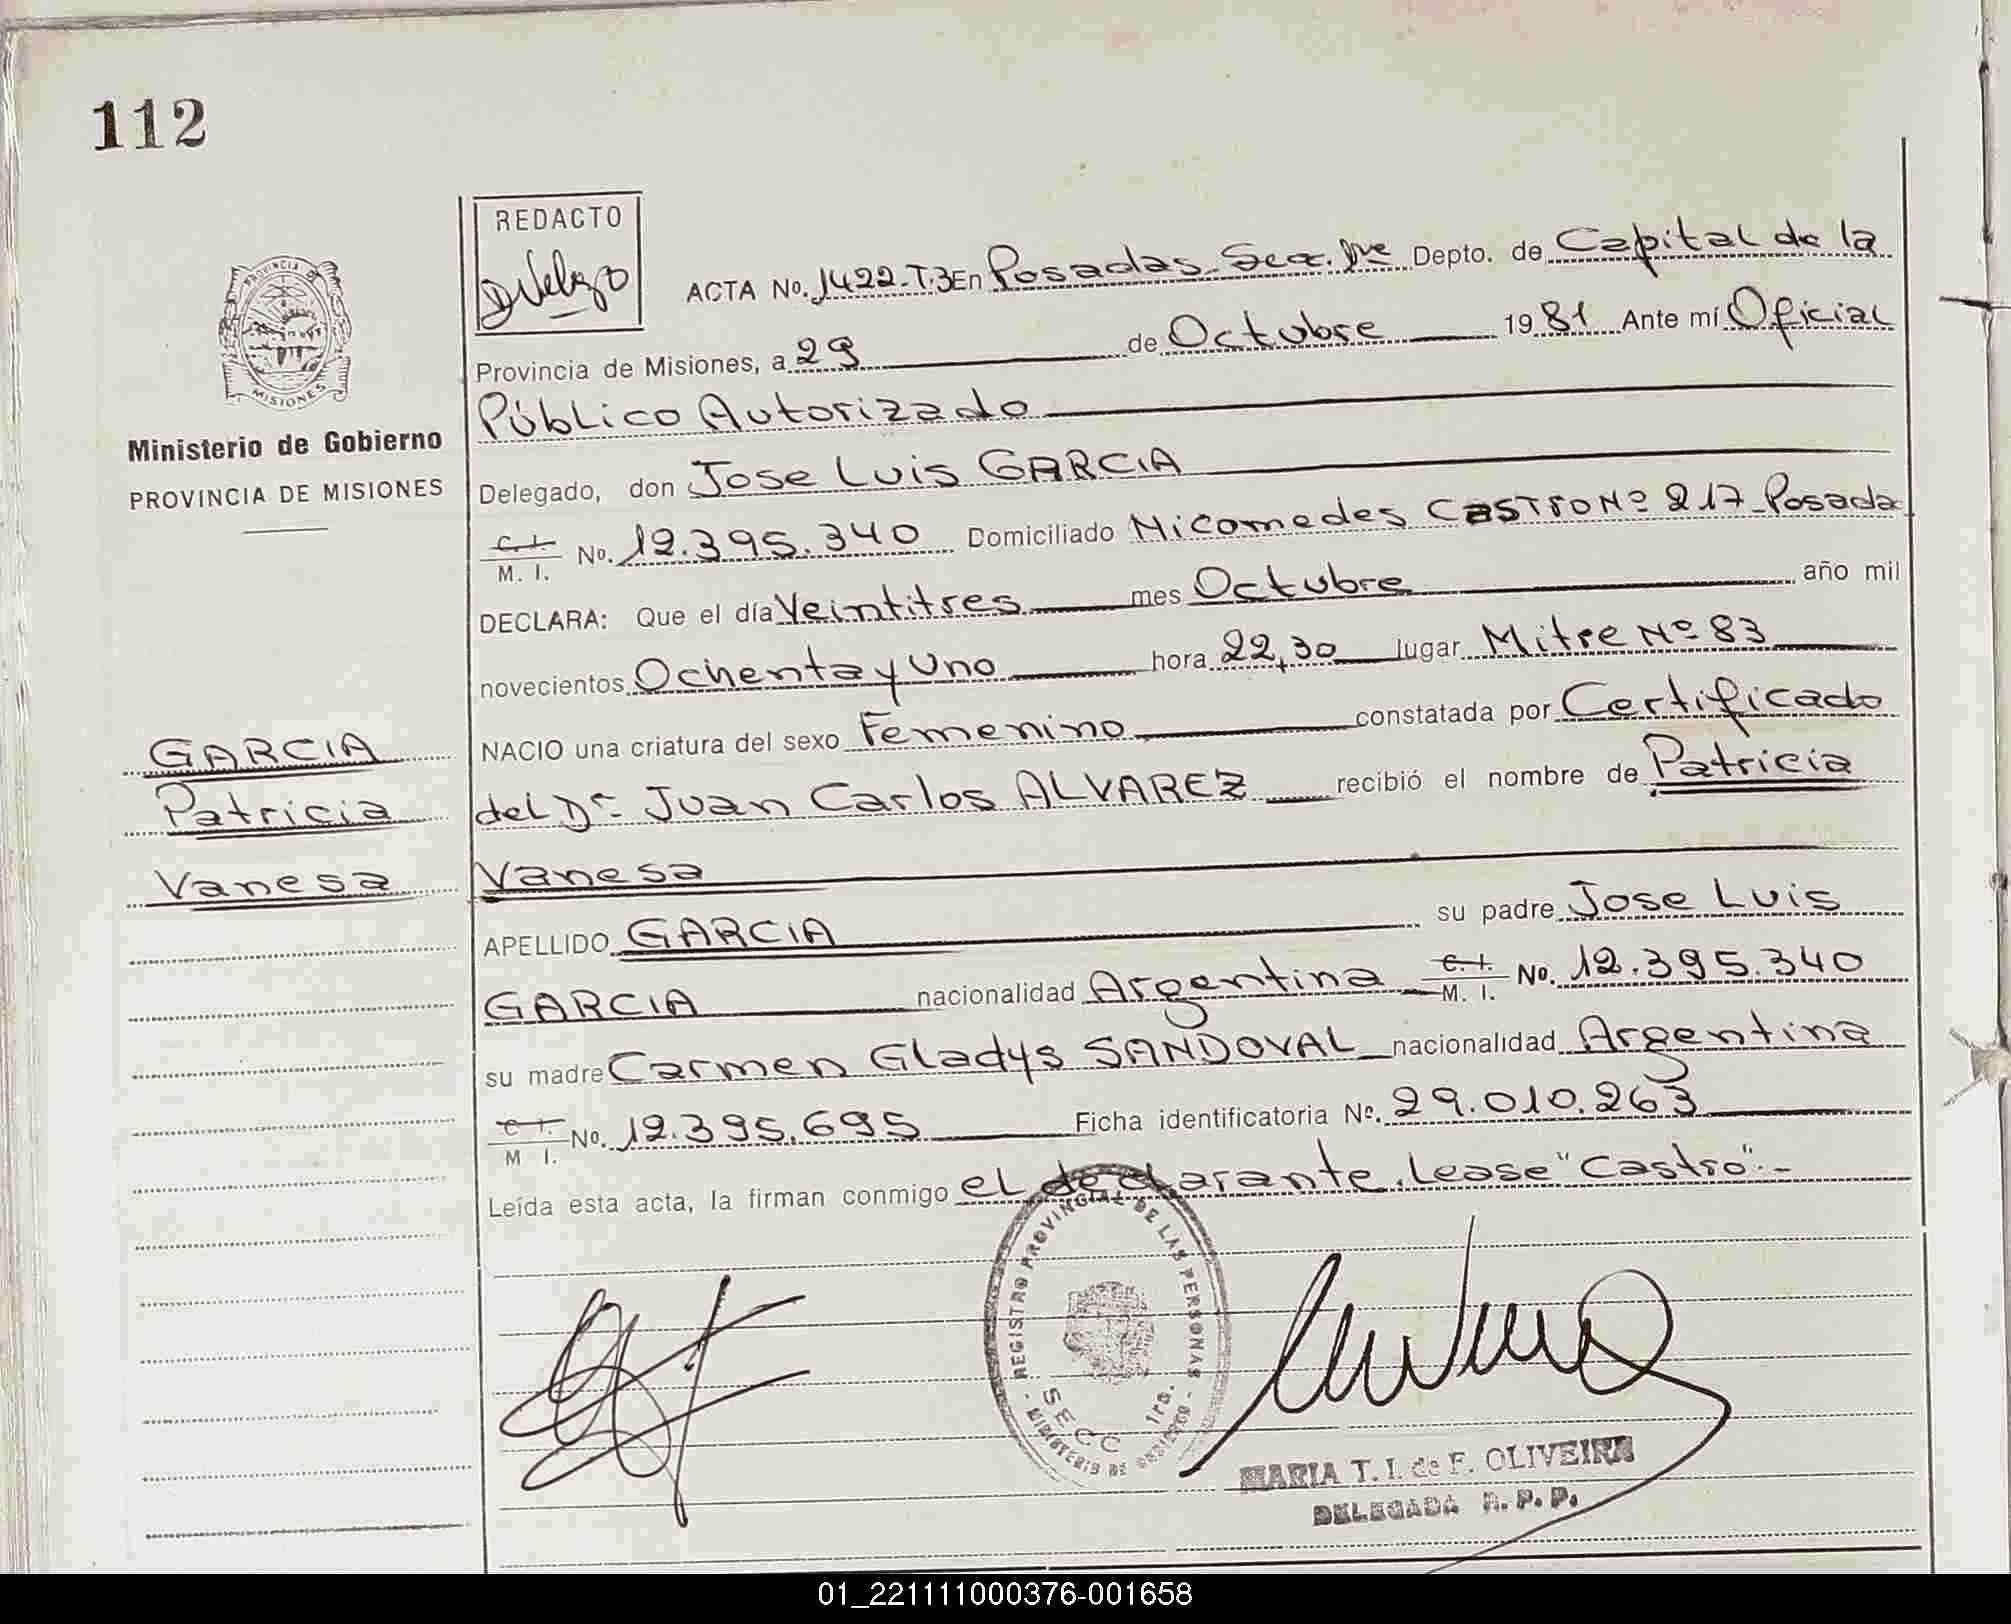 112
REDACTO
PROVINCIA DE
MISIONES
Ministerio de Gobierno
PROVINCIA DE MISIONES
ACTA No. 1422-T.3 En Posadas Secc. 1ra Depto. de Capital de la
Provincia de Misiones, a 29 de Octubre 1981 Ante mí Oficial
Público Autorizado
Delegado, don Jose Luis GARCIA
C. I. M. I. No. 12.395.340 Domiciliado Nicomedes Castro Nº 217 Posadas
DECLARA: Que el día Veintitres mes Octubre año mil
novecientos Ochenta y Uno hora 22,30 lugar Mitre Nº 83
NACIO una criatura del sexo Femenino constatada por Certificado
del Dr. Juan Carlos ALVAREZ recibió el nombre de Patricia
Vanesa
GARCIA
Patricia
Vanesa
APELLIDO GARCIA su padre Jose Luis
GARCIA nacionalidad Argentina C. I. M. I. No. 12.395.340
su madre Carmen Gladys SANDOVAL nacionalidad Argentina
C. I. M. I. No. 12.395.695 Ficha identificatoria No. 29.010.263
Leída esta acta, la firman conmigo el declarante. Lease "Castro".-
REGISTRO PROVINCIAL DE LAS PERSONAS
SECC 1ra.
MINISTERIO DE GOBIERNO
MARIA T. I. de F. OLIVEIRA
DELEGADA R. P. P.
01_221111000376-001658